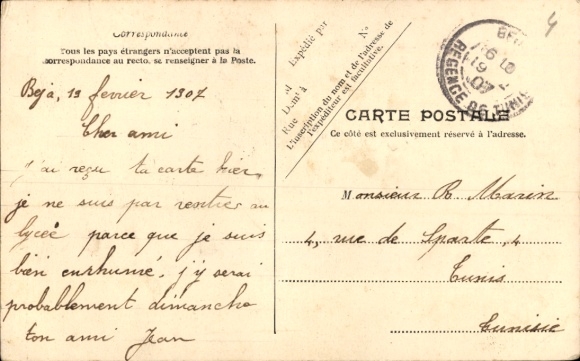 Correspondance
Tous les pays étrangers n'acceptent pas la
correspondance au recto, se renseigner à la Poste.
Beja, 19 fevrier 1907
Cher ami
j'ai reçu ta carte hier,
je ne suis pas rentré au
lycée parce que je suis
bien enrhumé. j'y serai
probablement dimanche
ton ami Jean
Expédié par
M
Demt à
Rue
No
L'inscription du nom et de l'adresse de
l'expéditeur est facultative.
4
RÉGENCE DE TUNIS
CARTE POSTALE
Ce côté est exclusivement réservé à l'adresse.
Monsieur R Marin
4, rue de Sparte, 4
Tunis
Tunisie